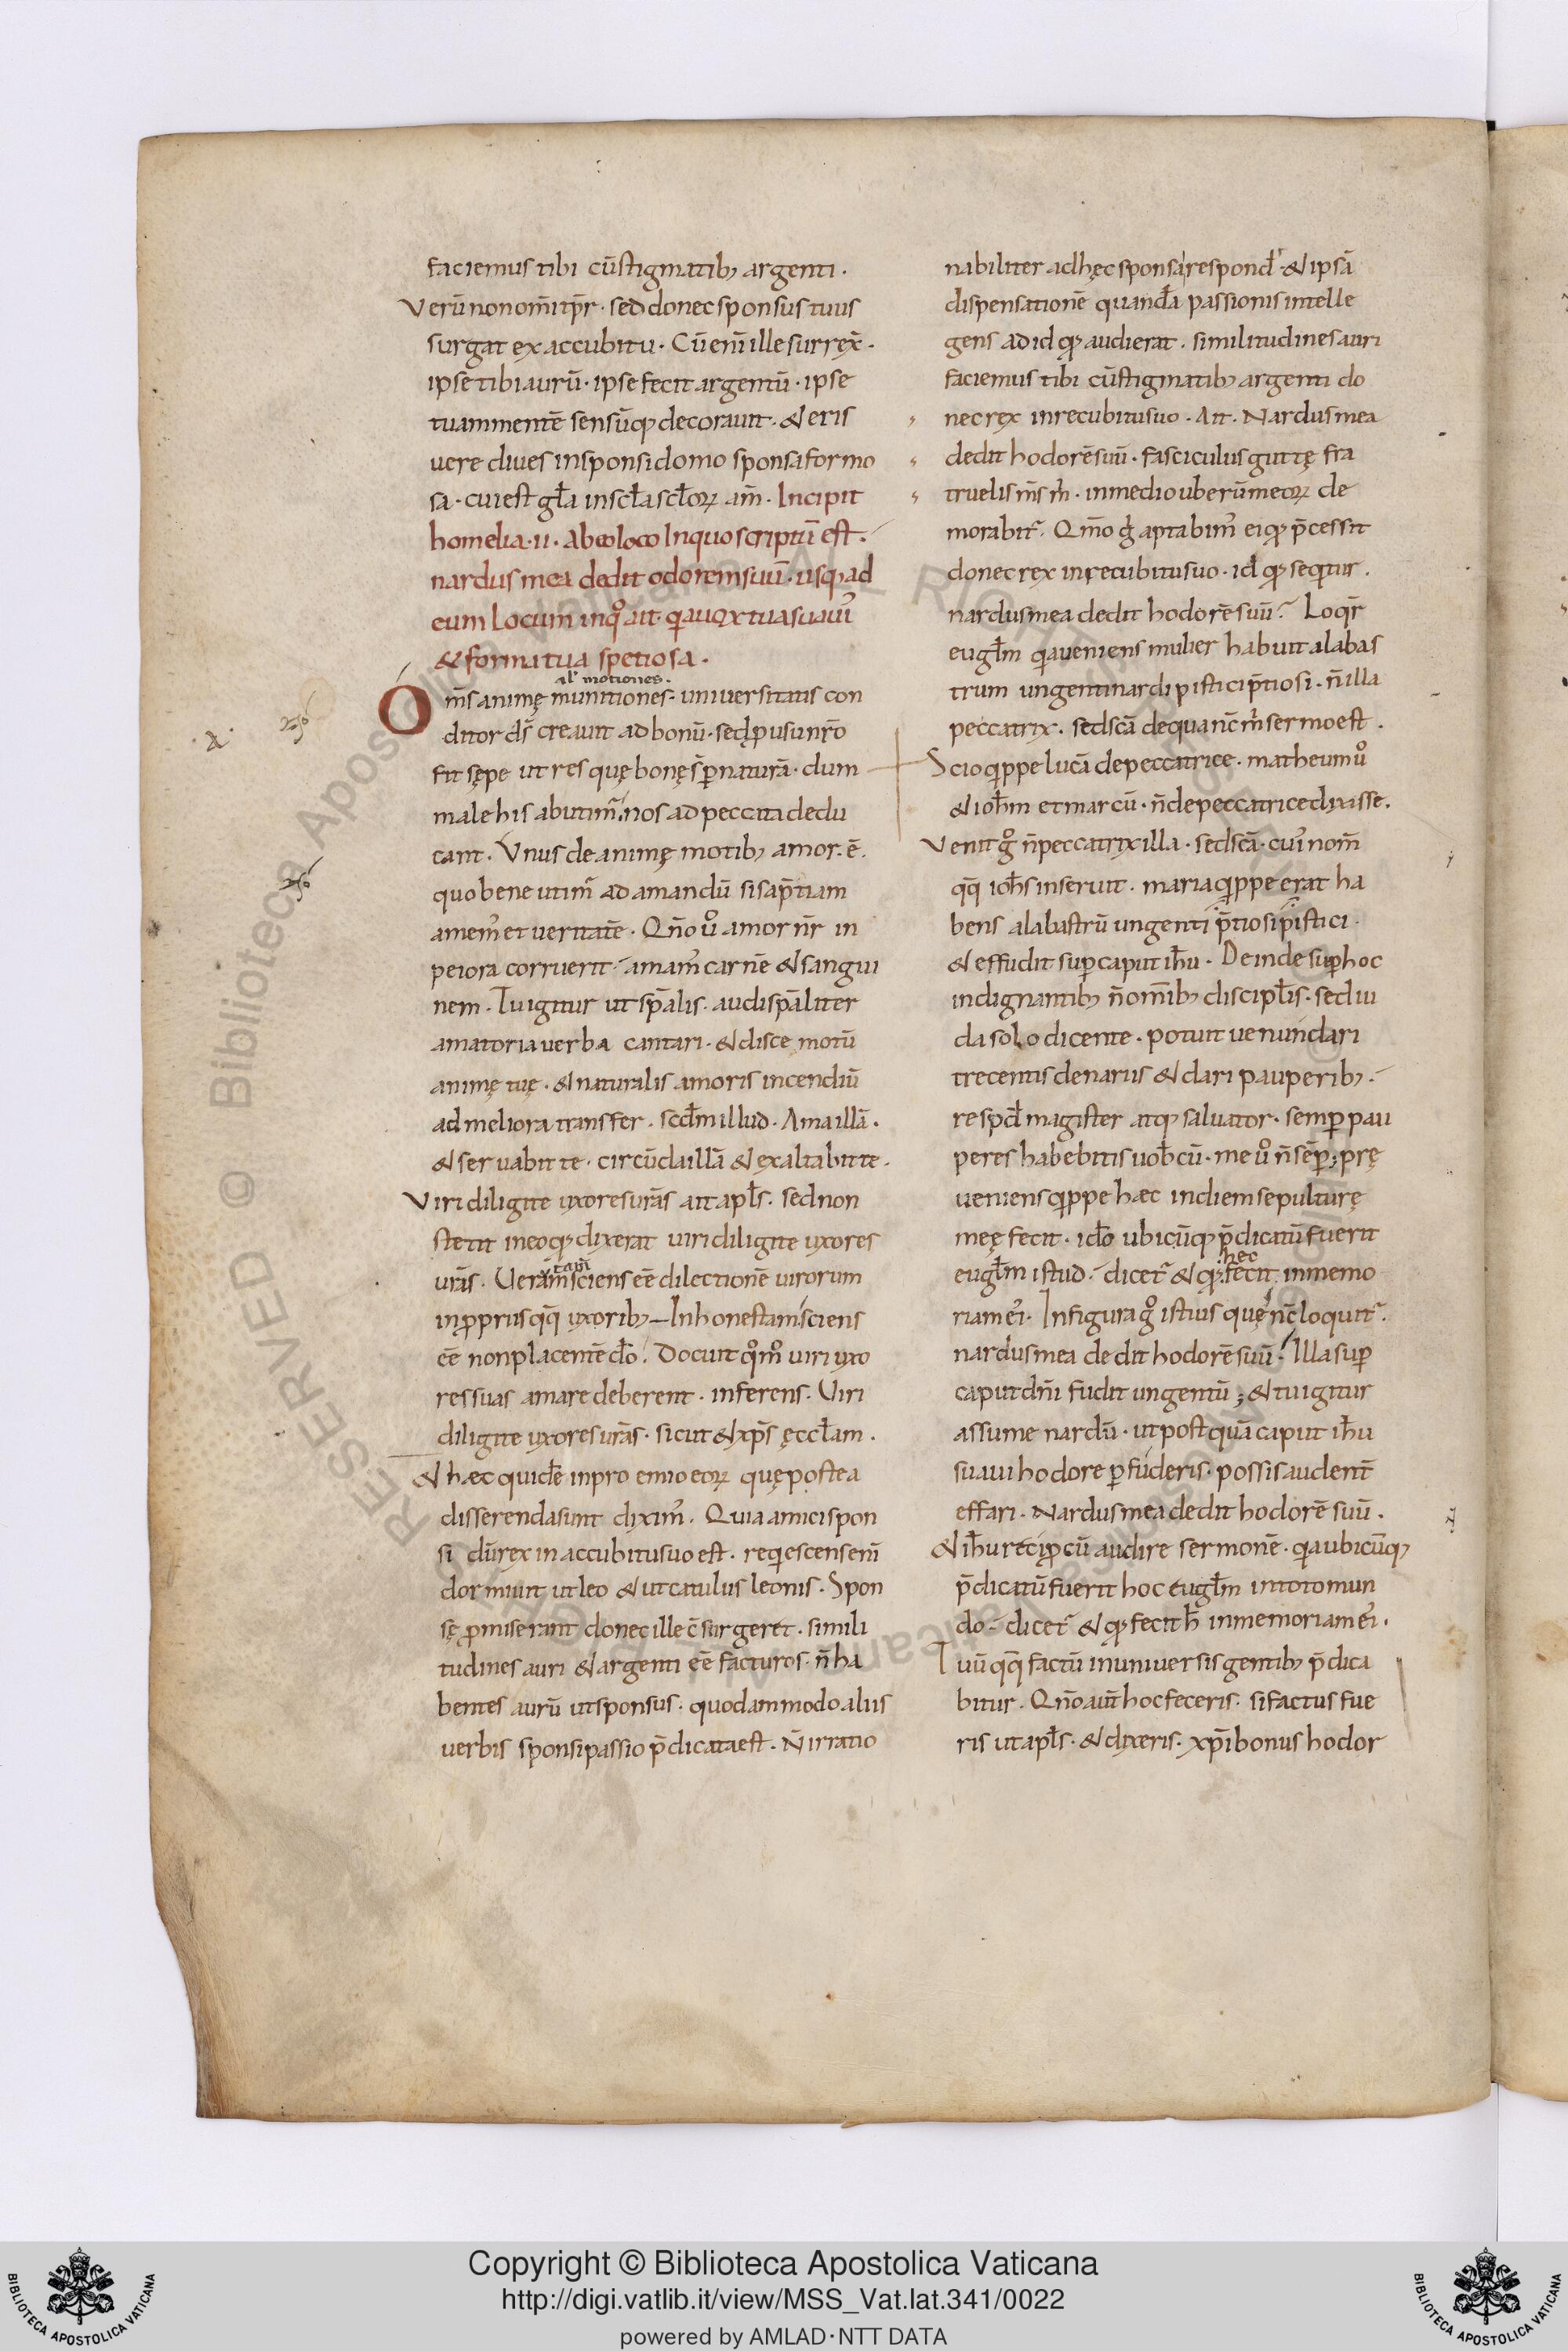 faciemus tibi cū stigmatib; argenti.
Verū non om̄i tp̄r. sed donec sponsus tuus
surgat ex accubitu. Cū eni ille surrex̄.
ipse tibi aurū. ipse fecit argentū. ipse
tuam mentē sensūq; decorauit. & eris
uere diues in sponsi domo sponsa formo
sa. cui est gl̄a in scl̄a scl̄oꝝ am̄. Incipit
homelia .ii. Ab eo loco In quo scriptū est.
nardus mea dedit odorem suū. usq; ad
eum Locum in qͦ ait. qa uox tua suauis
& forma tua spetiosa.
al' motiones.
Om̄s animę munitiones. uniuersitatis con
ditor ds̄ creauit ad bonū. sed p usū nr̄o
fit sępe ut res quę bonę s̄ per naturā. dum
male his abutim̄. nos ad peccata dedu
cant. Unus de animę motib; amor. ē.
quo bene utim̄ ad amandū si sap̄tiam
amem̄ et ueritatē. Qn̄o uͦ amor nr̄ in
peiora corruerit. amam̄ carnē & sangui
nem. Tu igitur ut sp̄alis. audi sp̄aliter
amatoria uerba cantari. & disce motū
animę tuę. & naturalis amoris incendiū
ad meliora transfer. scdm̄ illud. Ama illā.
& seruabit te. circūda illā & exaltabit te.
Viri diligite uxores urās ait apl̄s. sed non
stetit in eo q; dixerat uiri diligite uxores
urās. Ueram sciens eē dilectionē uirorum
in propriis qq̄ uxorib; Inhonestam sciens
eē non placentē do. Docuit qͦm̄ͦ uiri uxo
res suas amare deberent. inferens. Uiri
diligite uxores urās. sicut & xp̄s ęccl̄am.
& hæc quidē in proemio eoꝝ quę postea
disserenda sunt dixim̄. Quia amici spon
si dū rex in accubitu suo est. reqescens eni
dormiuit ut leo & ut catulus leonis. Spon
sę promiserant donec ille c̄surgeret. simili
tudines auri & argenti eē facturos. n̄ ha
bentes aurū ut sponsus. quodammodo aliis
uerbis sponsi passio p̄dicata est. N̄ irratio
nabiliter ad hęc sponsa respond̄. & ipsā
dispensationē quandā passionis intelle
gens ad id q; audierat. similitudines auri
faciemus tibi cū stigmatib; argenti do
nec rex in recubitu suo. Ait. Nardus mea
dedit hodorē suū. fasciculus guttę fra
truelis m̄s m̄. in medio uberū meoꝝ de
morabit̄. Qm̄o g̊ aptabim̄ ei q; p̄cessit
donec rex in recubitu suo. id q; seqtur.
nardus mea dedit hodorē suū. Loqr̄
eugl̄m qa ueniens mulier habuit alabas
trum ungenti nardi pistici p̄tiosi. n̄ illa
peccatrix. sed scā de qua nc̄ m̄ sermo est.
Scio qippe lucā de peccatrice. matheum uͦ
& ioh̄m et marcū. n̄ de peccatrice dixisse.
Venit g̊ n̄ peccatrix illa. sed scā. cui nom̄
qq̄ ioh̄s inseruit. maria qippe erat ha
bens alabastrū ungenti p̄tiosi pistici.
& effudit sup caput ih̄u. Deinde sup hoc
indignantib; n̄ om̄ib; discipl̄is. sed iu
da solo dicente. potuit uenundari
trecentis denariis & dari pauperib;.
respd̄ magister atq; saluator. semp pau
peres habebitis uob̄cū. me uͦ n̄ sēp; prę
ueniens qippe hæc in diem sepulturę
meę fecit. ido ubicūq; p̄dicatū fuerit
hec
eugl̄m istud. dicet̄ & q; fecit in memo
riam ei. In figura g̊ istius quę nc̄ loquit̄.
nardus mea dedit hodorē suū. Illa sup
caput dn̄i fudit ungentū; & tu igitur
assume nardū. ut postquā caput ih̄u
suaui hodore pfuderis. possis audent̄
effari. Nardus mea dedit hodorē suū.
& ih̄u recipcū audire sermonē. qa ubicūq;
p̄dicatū fuerit hoc eugl̄m in toto mun
do. dicet̄ & q; fecit h̄ in memoriam ei.
Tuū qq̄ factū in uniuersis gentib; p̄dica
bitur. Qn̄o aut̄ hoc feceris. si factus fue
ris ut apl̄s. & dixeris. xp̄i bonus hodor
RESERVED © Biblioteca Apostolica Vaticana ALL RIGHTS
Copyright © Biblioteca Apostolica Vaticana
http://digi.vatlib.it/view/MSS_Vat.lat.341/0022
powered by AMLAD·NTT DATA
BIBLIOTECA APOSTOLICA VATICANA
BIBLIOTECA APOSTOLICA VATICANA